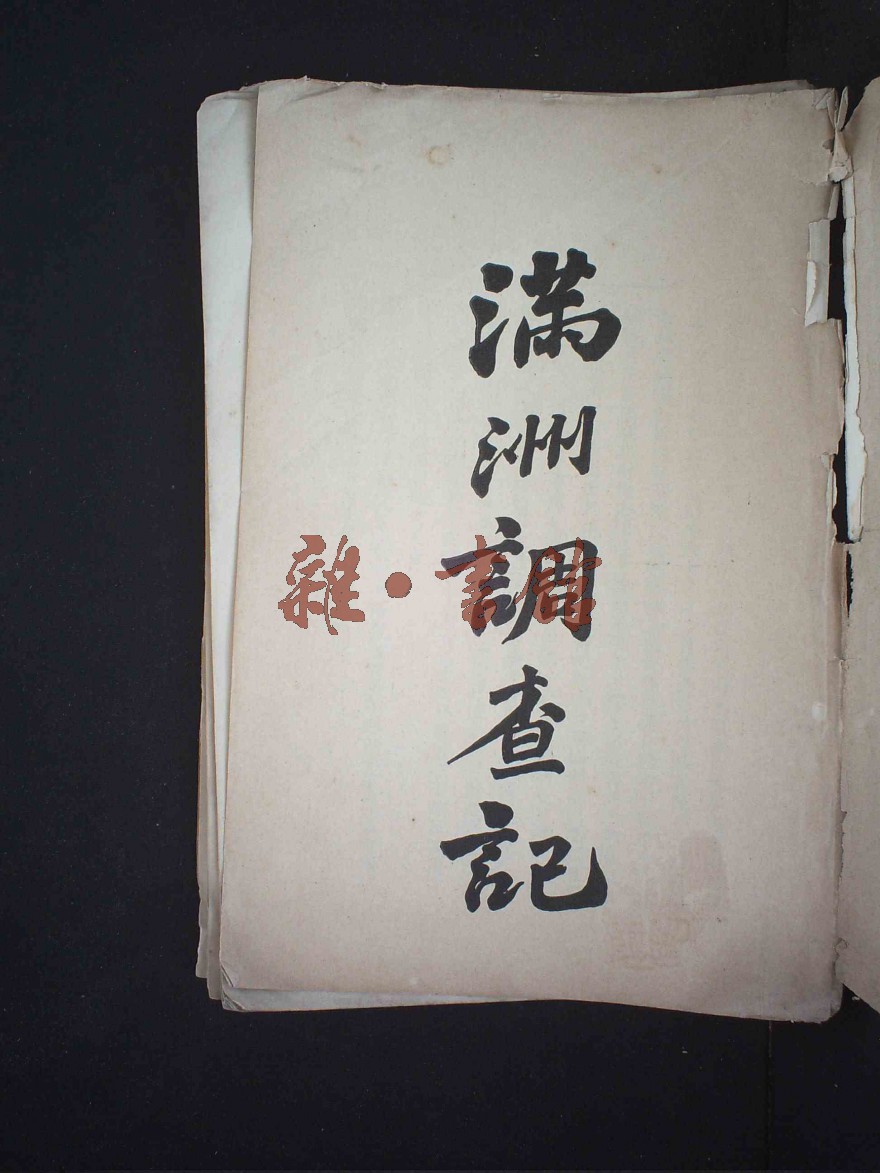 滿洲調查記
雜·書館